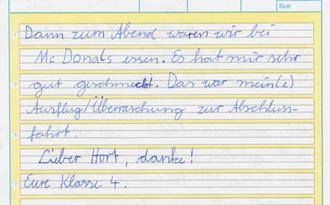 Blatt
Dann zum Abend waren wir bei
Mc Donats essen. Es hat mir sehr
gut geschmeckt. Das war mein(e)
Ausflug/Überraschung zur Abschluss-
fahrt.
Lieber Hort, danke!
Eure Klasse 4.